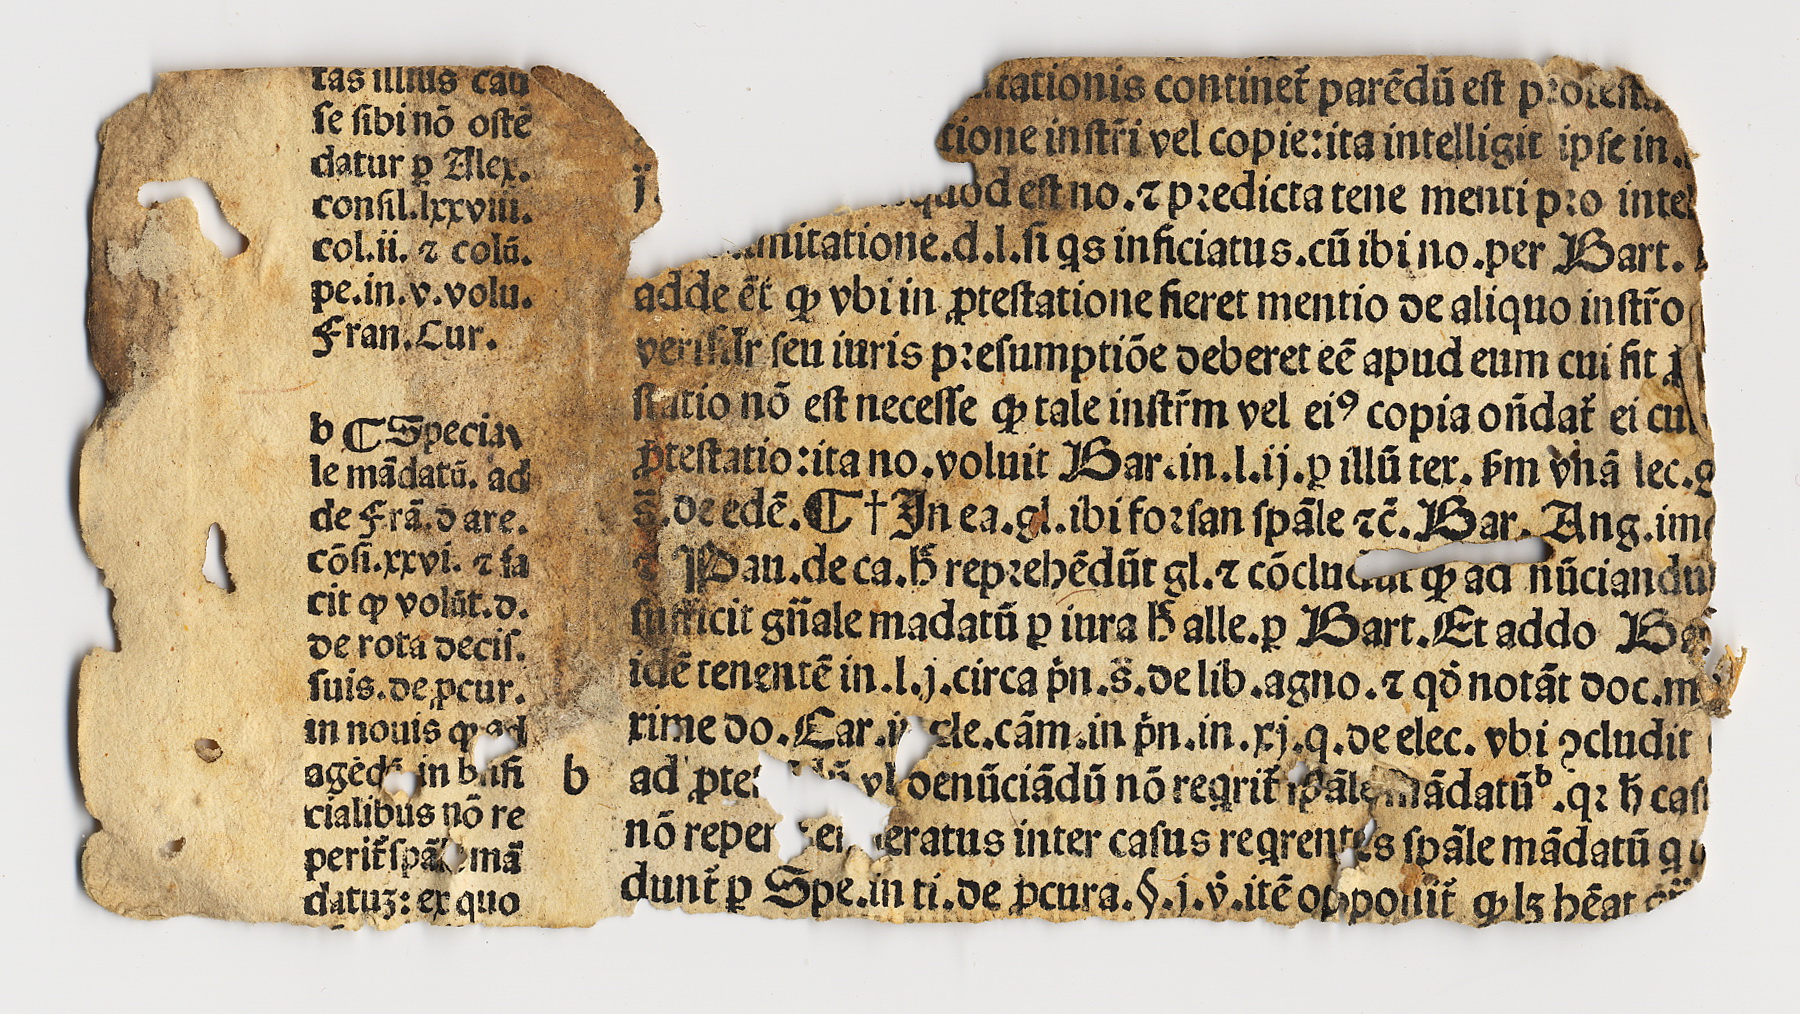 tas illius cau
se sibi nō ostē
datur ꝑ Alex.
consil.lxxviii.
col.ii. ⁊ colū.
pe.in.v.volu.
Fran.Cur.
b ¶ Specia
le mādatū. ad
de Frā.d are.
cōsi.xxvi. ⁊ fa
cit ꝙ volūt.d.
de rota decis.
suis.de ꝓcur.
in nouis ꝙ ad
agēdū in
cialibus nō re
perit̄ spāle mā
datuꝫ: ex quo
tationis continet̄ parēdū est protesta
tione instr̄i vel copie:ita intelligit ipse in.
ij. quod est no.⁊ predicta tene menti pro intel
mitatione.d.l.si qs inficiatus.cū ibi no.per Bart.
adde ēt ꝙ vbi in ꝓtestatione fieret mentio de aliquo instr̄o
verisil̄r seu iuris presumptiōe deberet eē apud eum cui fit ꝓ
statio nō est necesse ꝙ tale instr̄m vel eiꝰ copia on̄dat̄ ei cui
ꝓtestatio:ita no.voluit Bar.in.l.ij.ꝑ illū ter. ẜm vnā lec.
s̄.de edē.¶ † In ea.gl.ibi forsan spāle ⁊c̄.Bar. Ang.imo
⁊ Pau.de ca.h̄ reprehēdūt gl.⁊ cōcludūt ꝙ ad nūciandu
sufficit gn̄ale madatū ꝑ iura h̄ alle.ꝑ Bart.Et addo Bar
idē tenentē in.l.j.circa pn̄.s̄.de lib.agno.⁊ qđ notāt doc.m
xime do.Car.in cle.cām.in pn̄.in.xj.q.de elec. vbi ꝯcludit
ad ꝓtes vl̓ denūciādū nō reqrit̄ spāle mādatūᵇ.qꝛ h̄ cas
b
nō reper eratus inter casus reqrentes spāle mādatū q
dunt̄ ꝑ Spe.in ti.de ꝓcura.§.j.v̄.itē opponit̄ ꝙ lꝫ hēat